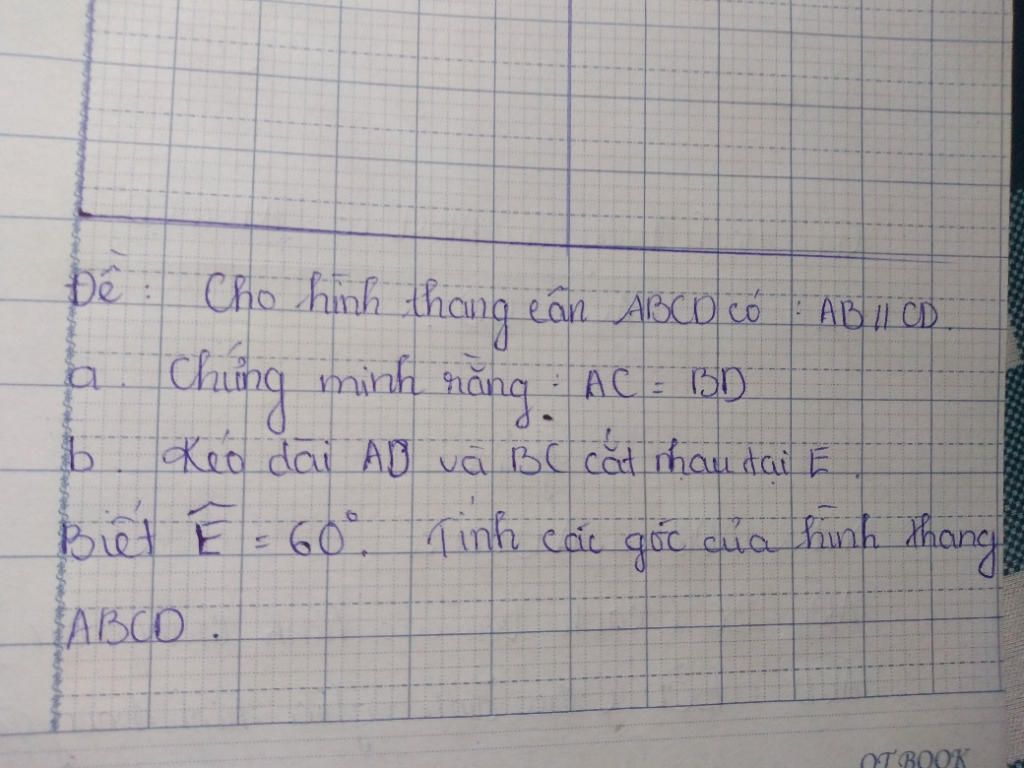 Đề : Cho hình thang cân ABCD có : AB // CD.
a. Chứng minh rằng : AC = BD
b. Kéo dài AD và BC cắt nhau tại E.
Biết Ê = 60°. Tính các góc của hình thang
ABCD.
OT BOOK